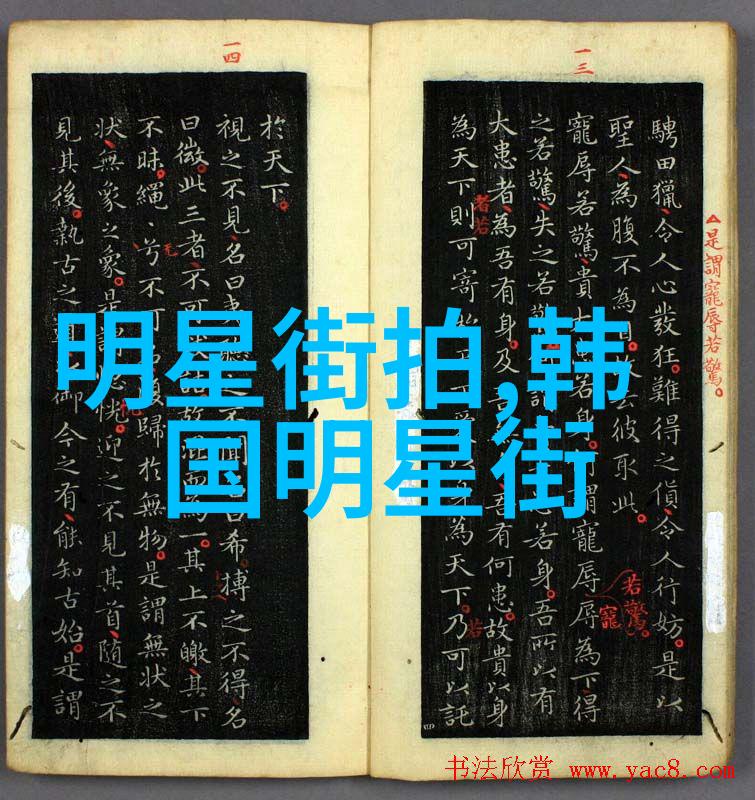 一三
△是謂寵辱若驚。
騁田獵令人心發狂。難得之貨令人行妨。是以
聖人為腹不為目。去彼取此。
寵辱若驚貴若身。謂寵辱辱為下得
之若驚失之若驚若身。吾所以有
若驚。
寵
大患者為吾有身。及吾有何患。故貴以身
者若
為天下則可寄身為天下。乃可以託
若
一四
於天下。
視之不見名曰夷之不聞希搏之不得名
曰微。此三者不可為一。其上不皦其下
不昧。繩〻兮不可復歸於無物。是謂無狀之
无
狀無象之象。是恍。迎之不見其首隨之不
見其後。執古之御今之有。能知古始。是謂
明星街拍,韩
国明星街
书法欣赏 www.yac8.com